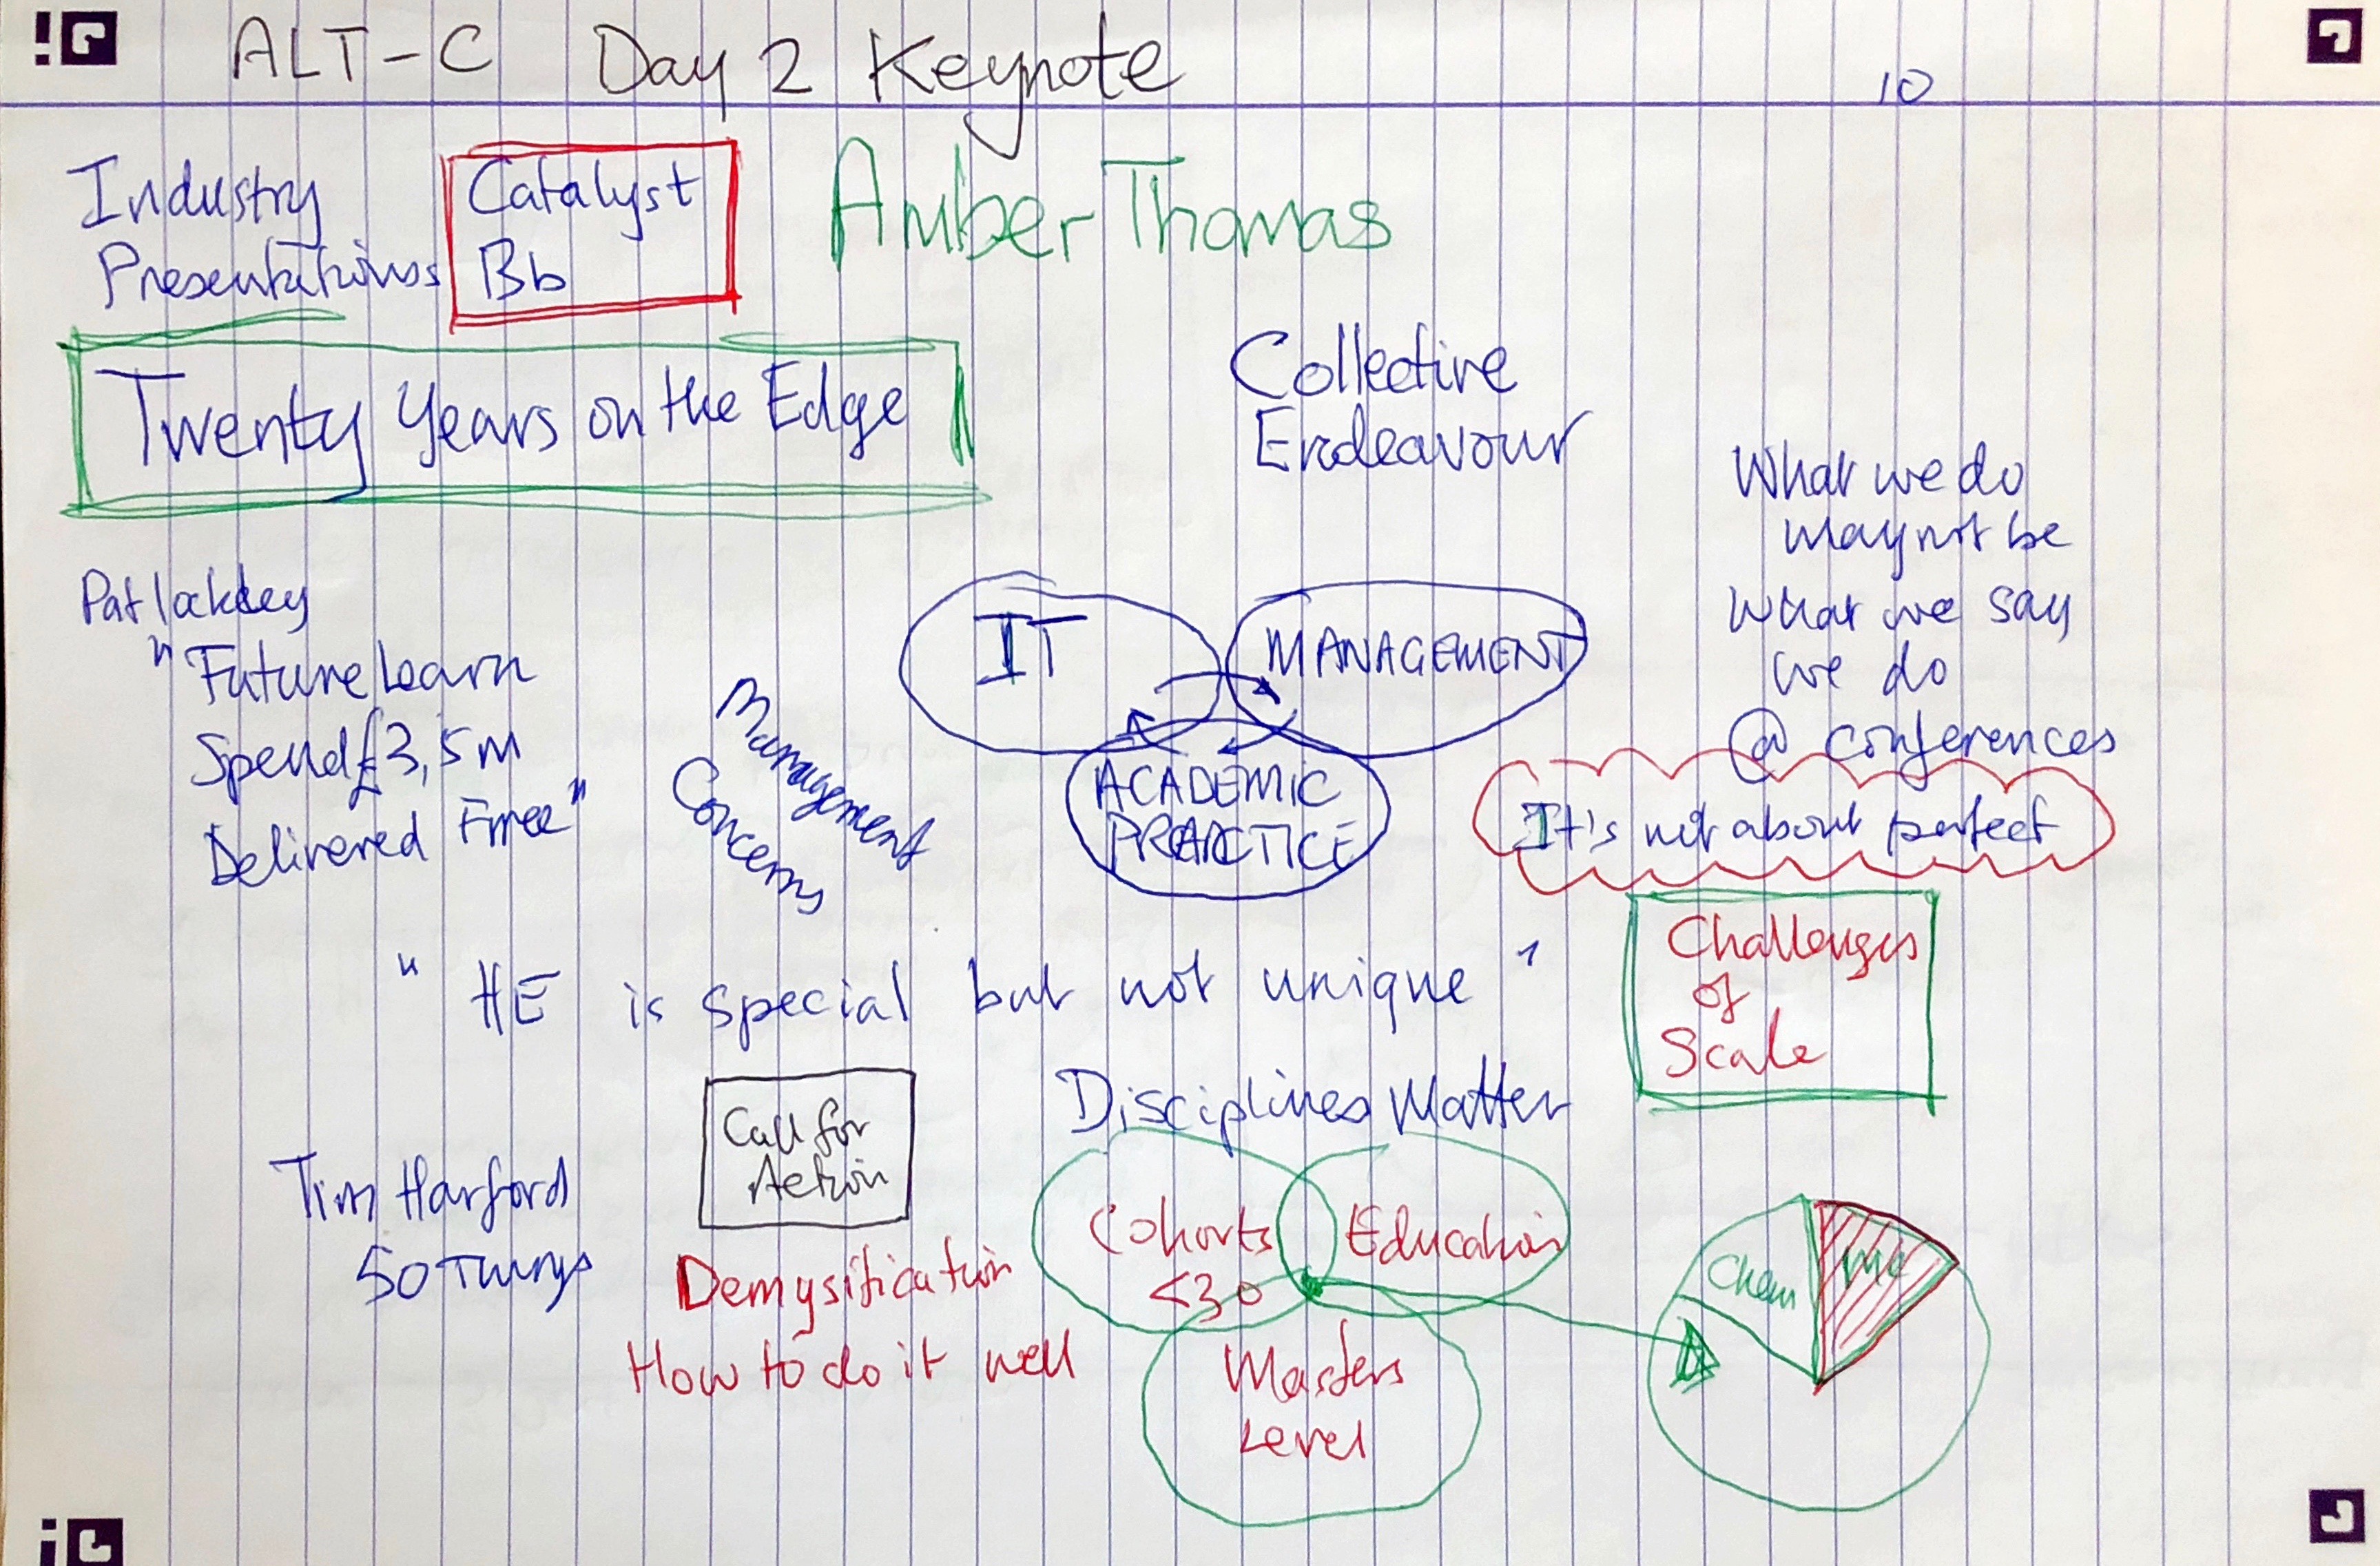 ALT-C Day 2 Keynote
10
Industry
Presentations
Catalyst
Bb
Amber Thomas
Twenty Years on the Edge
Collective
Endeavour
What we do
may not be
what we say
we do
@ conferences
Pat lockley
"FutureLearn
Spend £3,5m
Delivered Free"
Management
Concerns
IT
MANAGEMENT
ACADEMIC
PRACTICE
It's not about perfect
"HE is special but not unique"
Challenges
of
Scale
Call for
Action
Disciplines Matter
Tim Harford
50 Things
Demysification
How to do it well
Cohorts
<30
Education
Masters
Level
Chem